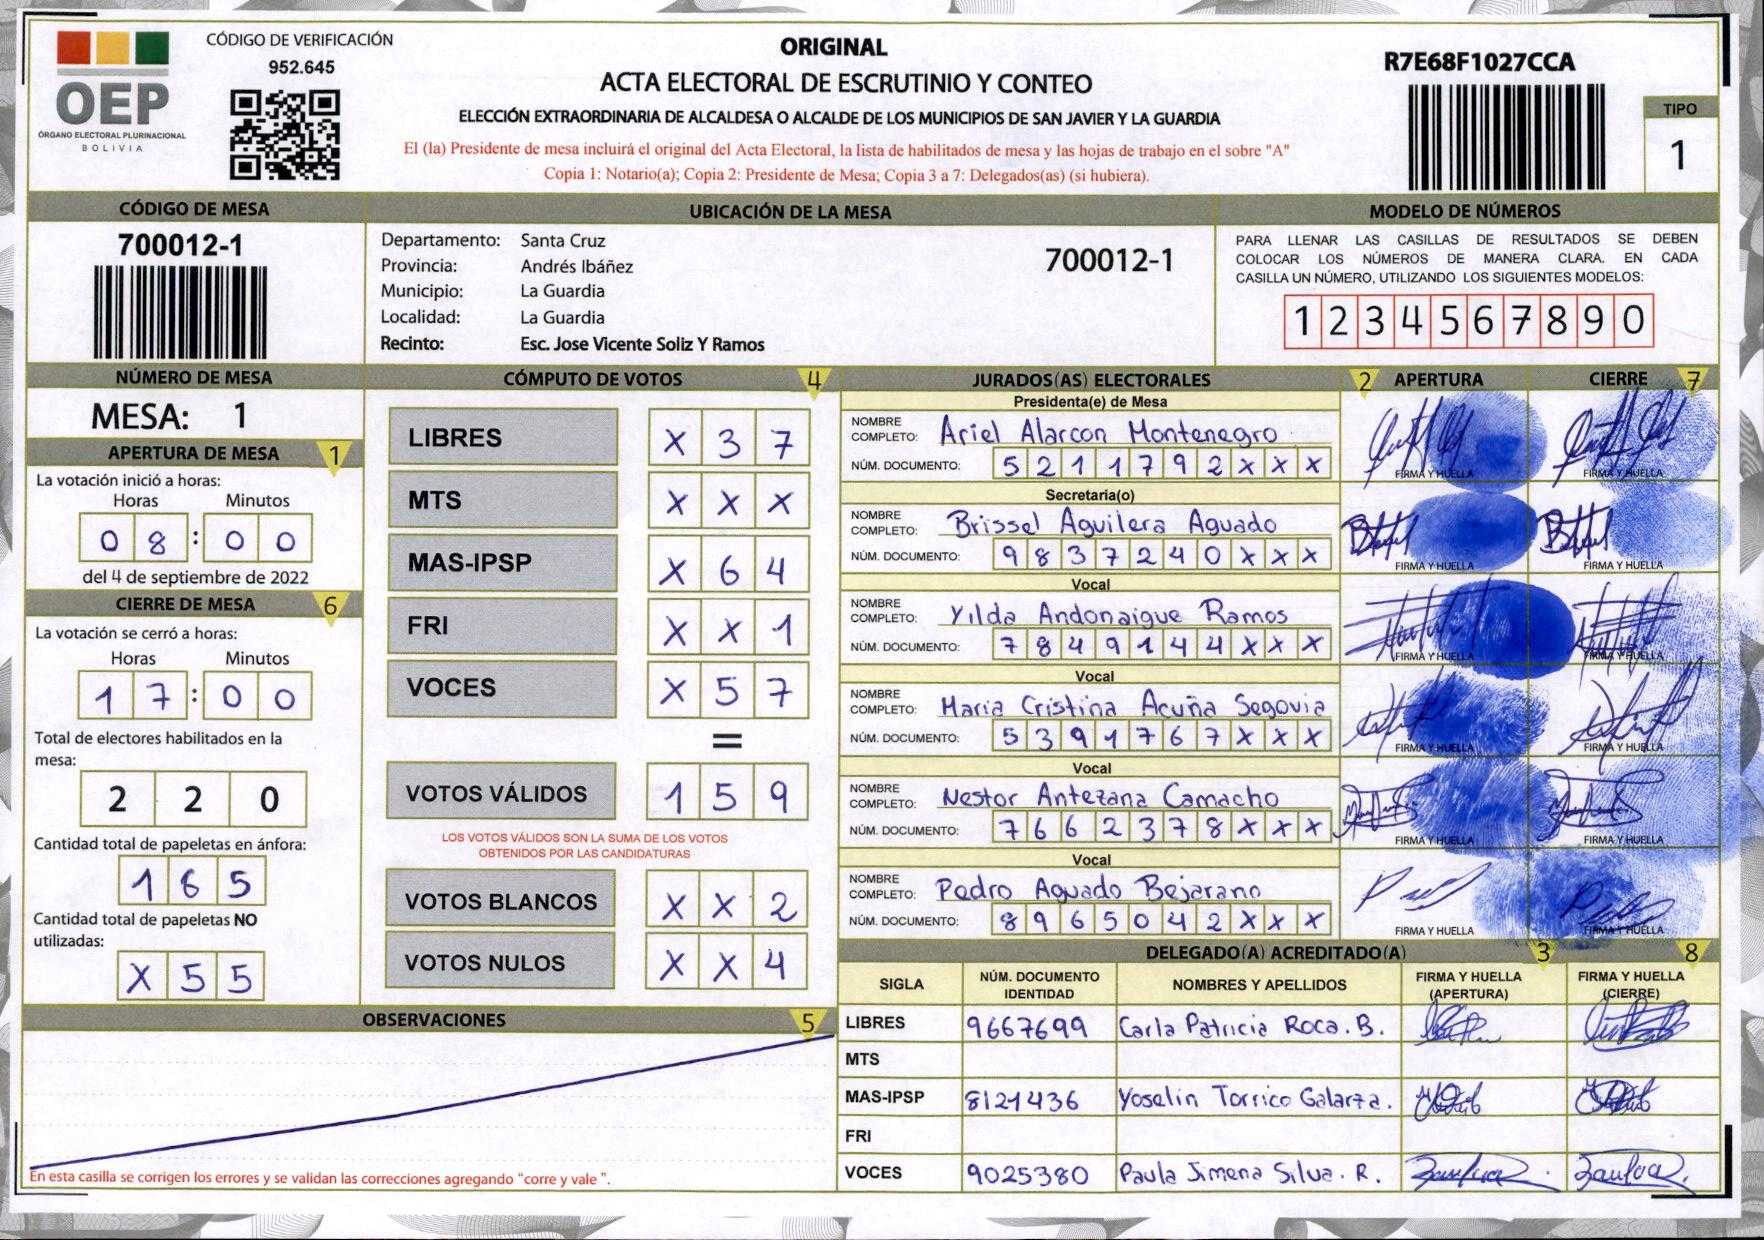 OEP
ÓRGANO ELECTORAL PLURINACIONAL
BOLIVIA
CÓDIGO DE VERIFICACIÓN
952.645
ORIGINAL
ACTA ELECTORAL DE ESCRUTINIO Y CONTEO
ELECCIÓN EXTRAORDINARIA DE ALCALDESA O ALCALDE DE LOS MUNICIPIOS DE SAN JAVIER Y LA GUARDIA
El (la) Presidente de mesa incluirá el original del Acta Electoral, la lista de habilitados de mesa y las hojas de trabajo en el sobre "A"
Copia 1: Notario(a); Copia 2: Presidente de Mesa; Copia 3 a 7: Delegados(as) (si hubiera).
R7E68F1027CCA
TIPO
1
CÓDIGO DE MESA
700012-1
UBICACIÓN DE LA MESA
Departamento: Santa Cruz
Provincia: Andrés Ibáñez
Municipio: La Guardia
Localidad: La Guardia
Recinto: Esc. Jose Vicente Soliz Y Ramos
700012-1
MODELO DE NÚMEROS
PARA LLENAR LAS CASILLAS DE RESULTADOS SE DEBEN
COLOCAR LOS NÚMEROS DE MANERA CLARA. EN CADA
CASILLA UN NÚMERO, UTILIZANDO LOS SIGUIENTES MODELOS:
1 2 3 4 5 6 7 8 9 0
NÚMERO DE MESA
MESA: 1
APERTURA DE MESA 1
La votación inició a horas:
Horas Minutos
0 8 : 0 0
del 4 de septiembre de 2022
CIERRE DE MESA 6
La votación se cerró a horas:
Horas Minutos
1 7 : 0 0
Total de electores habilitados en la
mesa:
2 2 0
Cantidad total de papeletas en ánfora:
1 6 5
Cantidad total de papeletas NO
utilizadas:
X 5 5
CÓMPUTO DE VOTOS 4
LIBRES X 3 7
MTS X X X
MAS-IPSP X 6 4
FRI X X 1
VOCES X 5 7
=
VOTOS VÁLIDOS 1 5 9
LOS VOTOS VÁLIDOS SON LA SUMA DE LOS VOTOS
OBTENIDOS POR LAS CANDIDATURAS
VOTOS BLANCOS X X 2
VOTOS NULOS X X 4
OBSERVACIONES 5
En esta casilla se corrigen los errores y se validan las correcciones agregando "corre y vale ".
JURADOS(AS) ELECTORALES 2 APERTURA CIERRE 7
Presidenta(e) de Mesa
NOMBRE
COMPLETO: Ariel Alarcon Montenegro
NÚM. DOCUMENTO: 5 2 1 1 7 9 2 X X X
FIRMA Y HUELLA FIRMA Y HUELLA
Secretaria(o)
NOMBRE
COMPLETO: Brissel Aguilera Aguado
NÚM. DOCUMENTO: 9 8 3 7 2 4 0 X X X
FIRMA Y HUELLA FIRMA Y HUELLA
Vocal
NOMBRE
COMPLETO: Yilda Andonaigue Ramos
NÚM. DOCUMENTO: 7 8 4 9 1 4 4 X X X
FIRMA Y HUELLA FIRMA Y HUELLA
Vocal
NOMBRE
COMPLETO: Maria Cristina Acuña Segovia
NÚM. DOCUMENTO: 5 3 9 1 7 6 7 X X X
FIRMA Y HUELLA FIRMA Y HUELLA
Vocal
NOMBRE
COMPLETO: Nestor Antezana Camacho
NÚM. DOCUMENTO: 7 6 6 2 3 7 8 X X X
FIRMA Y HUELLA FIRMA Y HUELLA
Vocal
NOMBRE
COMPLETO: Pedro Aguado Bejarano
NÚM. DOCUMENTO: 8 9 6 5 0 4 2 X X X
FIRMA Y HUELLA FIRMA Y HUELLA
DELEGADO(A) ACREDITADO(A) 3 8
SIGLA NÚM. DOCUMENTO IDENTIDAD NOMBRES Y APELLIDOS FIRMA Y HUELLA (APERTURA) FIRMA Y HUELLA (CIERRE)
LIBRES 9667699 Carla Patricia Roca. B.
MTS
MAS-IPSP 8121436 Yoselin Torrico Galarza.
FRI
VOCES 9025380 Paula Jimena Silva. R.